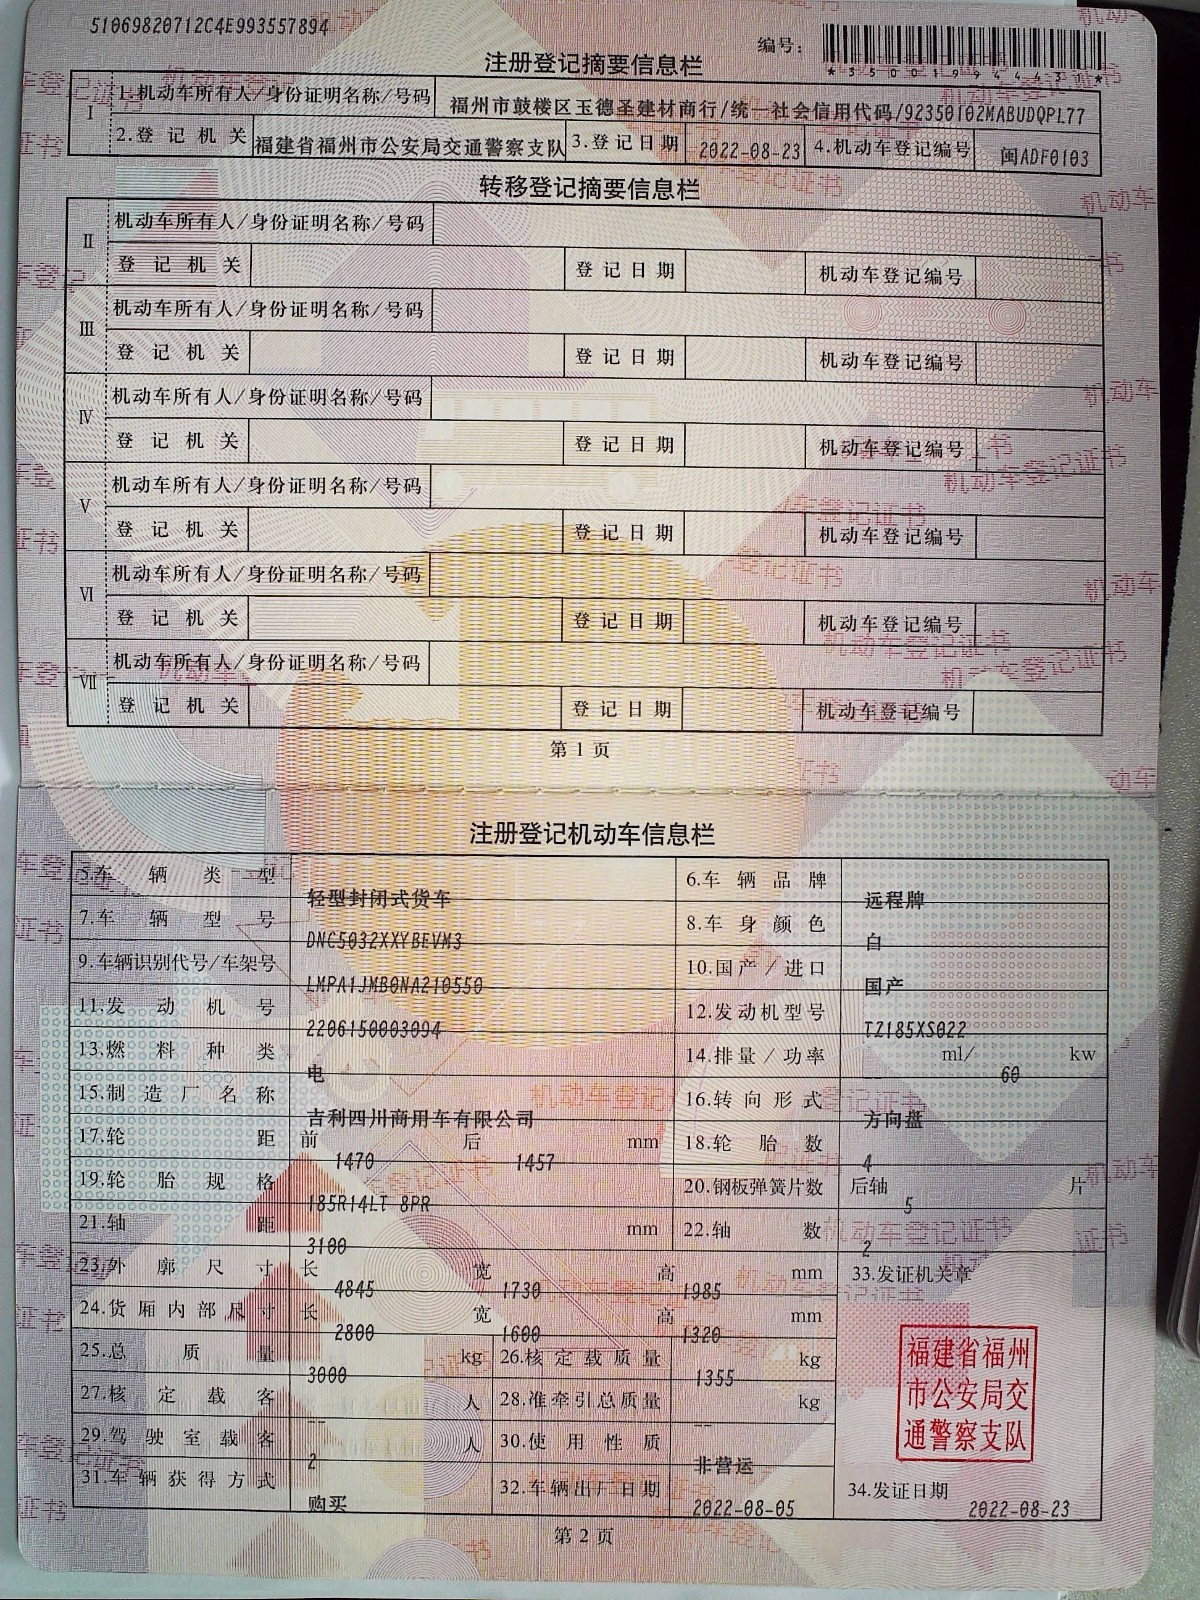 51069820712C4E993557894
编号:
*350019944431*
注册登记摘要信息栏
I 1.机动车所有人/身份证明名称/号码 福州市鼓楼区玉德圣建材商行/统一社会信用代码/92350102MABUDQPL77
2.登记机关 福建省福州市公安局交通警察支队 3.登记日期 2022-08-23 4.机动车登记编号 闽ADF0103
转移登记摘要信息栏
II 机动车所有人/身份证明名称/号码
登记机关 登记日期 机动车登记编号
III 机动车所有人/身份证明名称/号码
登记机关 登记日期 机动车登记编号
IV 机动车所有人/身份证明名称/号码
登记机关 登记日期 机动车登记编号
V 机动车所有人/身份证明名称/号码
登记机关 登记日期 机动车登记编号
VI 机动车所有人/身份证明名称/号码
登记机关 登记日期 机动车登记编号
VII 机动车所有人/身份证明名称/号码
登记机关 登记日期 机动车登记编号
第1页
注册登记机动车信息栏
5.车辆类型 轻型封闭式货车 6.车辆品牌 远程牌
7.车辆型号 DNC5032XXYBEVM3 8.车身颜色 白
9.车辆识别代号/车架号 LMPA1JMB0NA210550 10.国产/进口 国产
11.发动机号 2206150003094 12.发动机型号 TZ185XS022
13.燃料种类 电 14.排量/功率 ml/ 60 kw
15.制造厂名称 吉利四川商用车有限公司 16.转向形式 方向盘
17.轮距 前 1470 后 1457 mm 18.轮胎数 4
19.轮胎规格 185R14LT 8PR 20.钢板弹簧片数 后轴 5 片
21.轴距 3100 mm 22.轴数 2
23.外廓尺寸 长 4845 宽 1730 高 1985 mm 33.发证机关章
24.货厢内部尺寸 长 2800 宽 1600 高 1320 mm
25.总质量 3000 kg 26.核定载质量 1355 kg
27.核定载客 -- 人 28.准牵引总质量 -- kg
29.驾驶室载客 2 人 30.使用性质 非营运
31.车辆获得方式 购买 32.车辆出厂日期 2022-08-05 34.发证日期 2022-08-23
福建省福州
市公安局交
通警察支队
第2页